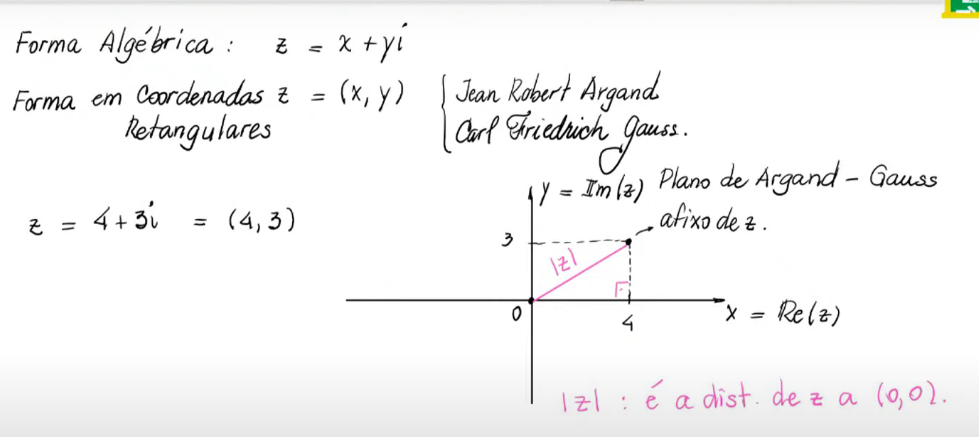 Forma Algébrica : z = x + yi
Forma em Coordenadas z = (x, y)
Retangulares
Jean Robert Argand
Carl Friedrich Gauss.
z = 4 + 3i = (4, 3)
y = Im(z)
Plano de Argand - Gauss
afixo de z.
3
|z|
0
4
x = Re(z)
|z| : é a dist. de z a (0,0).